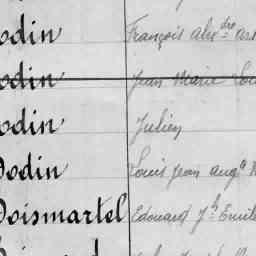 odin François alex.dre
odin Jean Marie
odin Julien
Dodin Louis Jean aug.te
Doismartel Edouard J.h Emile